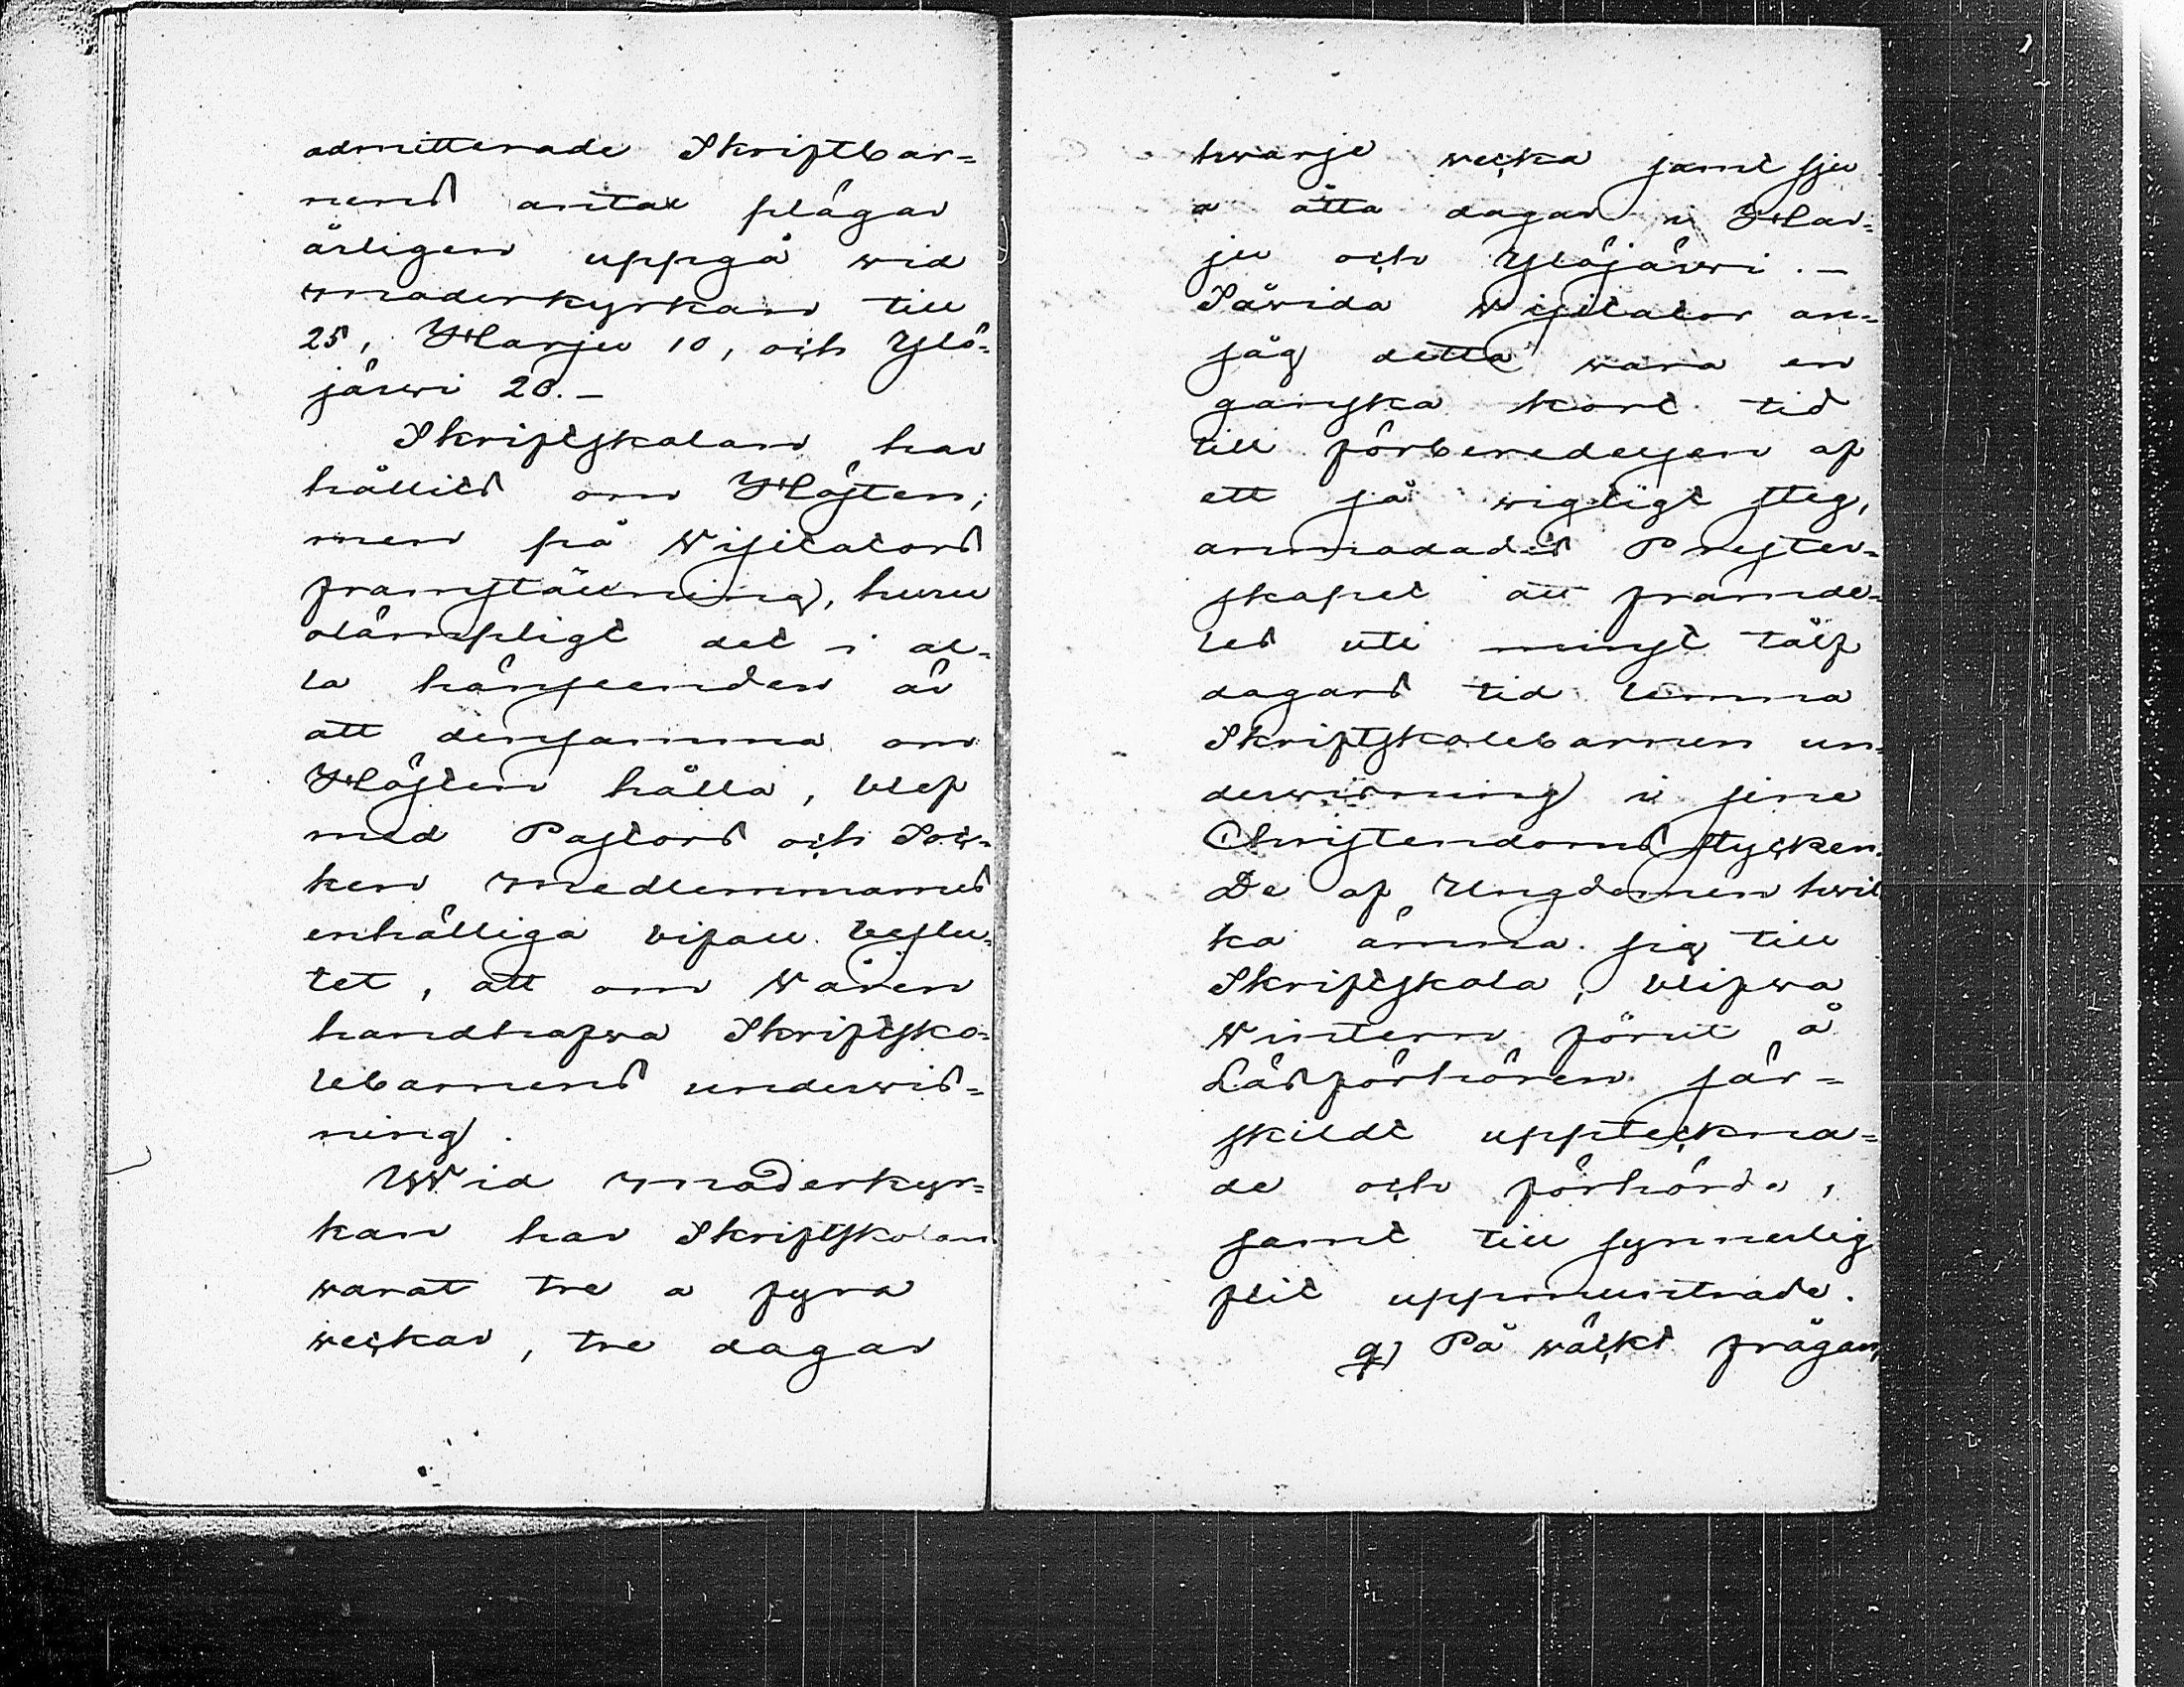 admitterade Skriftbar=
nens antal plägar
årligen uppgå wid
moderkyrkan till
25, Harju 10, och Ylö=
järwi 20.—
Skriftskolan har
hållits om Hösten;
men på Visitators
framställning, huru
olämpligt det i al=
la hänseenden är
att densamma om
Hösten hålla, blef
med Pastors och Soc=
ken medlemmarnes
enhälliga bifall beslu=
tet, att om Wåren
handhafwa Skriftsko=
lebarnens underwis=
ning.
Wid moderkyr=
kan har Skriftskolan
warat tre a fyra
weckor, tre dagar
hwarje wecka samt sju
a åtta dagar i Har=
ju och Ylöjärwi.—
Såwida Visitator an=
såg detta wara en
ganska kort tid
till förberedelsen af
ett så wigtigt steg,
anmodades Prester=
skapet att framde=
les uti minst tolf
dagars tid lemna
Skriftskolebarnen un=
derwisning i sine
Christendoms stycken.
De af Ungdomen hwil
ka ämna sig till
Skriftskola, blifwa
Wintern förut å
Läsförhören sär=
skildt uppteckna=
de och förhörde,
samt till synnerlig
flit uppmuntrade.
q) På wäckt frågan,